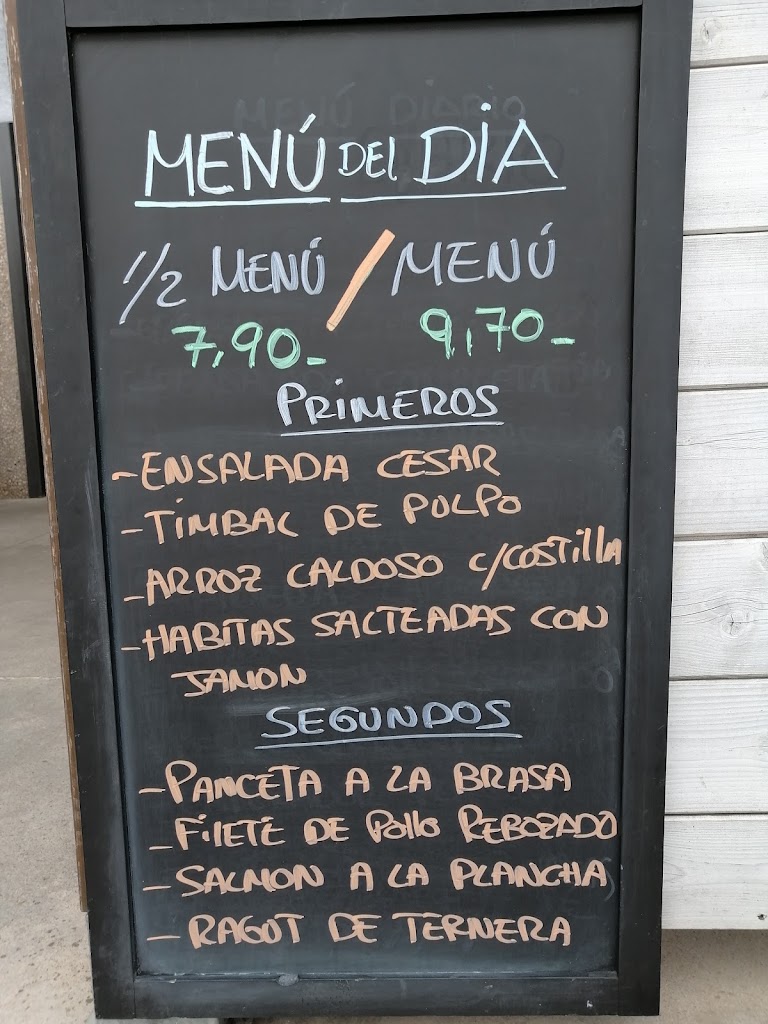 MENÚ DEL DIA
1/2 MENÚ / MENÚ
7,90- 9,70-
PRIMEROS
- ENSALADA CESAR
- TIMBAL DE PULPO
- ARROZ CALDOSO C/COSTILLA
- HABITAS SALTEADAS CON
JAMON
SEGUNDOS
- PANCETA A LA BRASA
- FILETE DE POLLO REBOZADO
- SALMON A LA PLANCHA
- RAGUT DE TERNERA